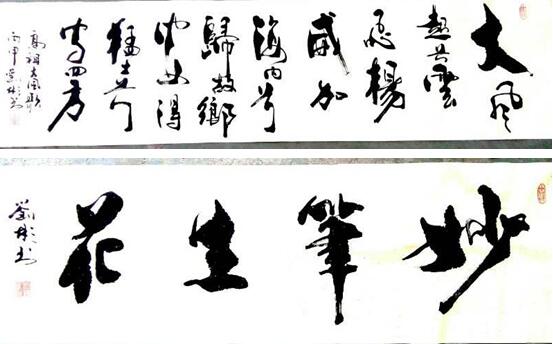 大風
起兮雲
飛揚
威加
海內兮
歸故鄉
安得
猛士兮
守四方
高祖大風歌
丙申劉彬書
妙筆生花
劉彬書